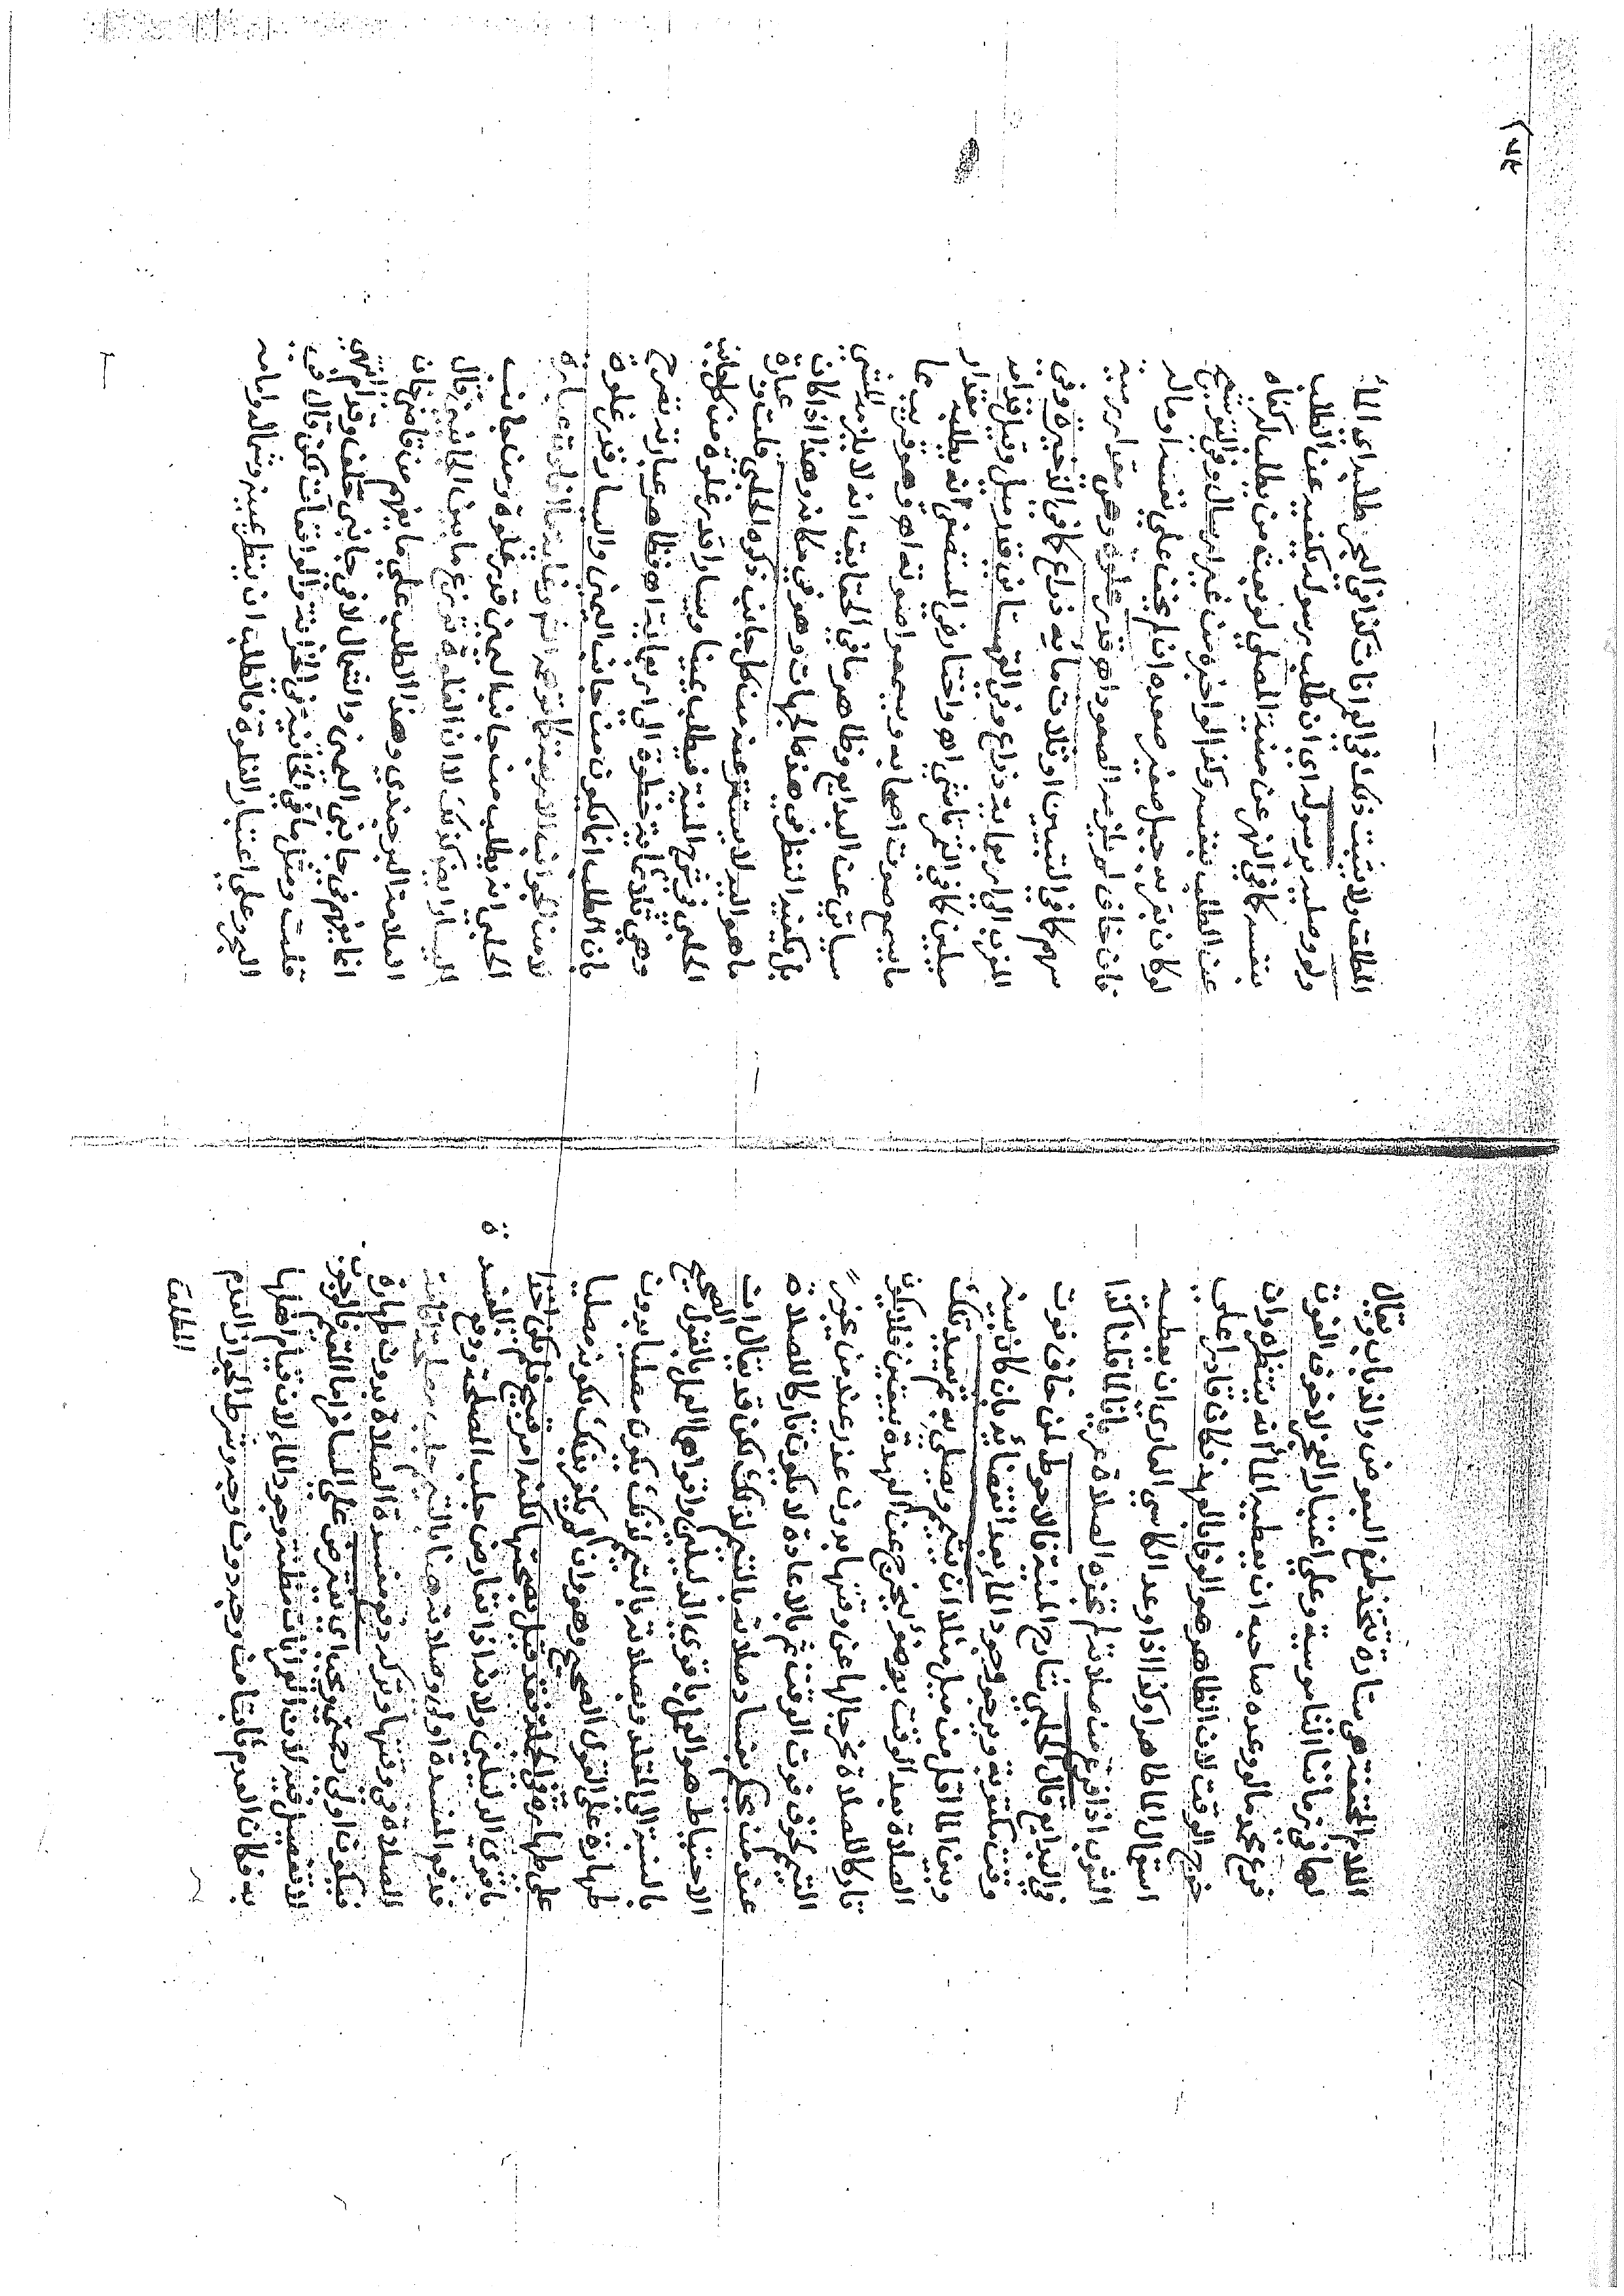 اللام المخففة هي ستارة تتخذ لمنع البعوض والذباب ويقال
لها في زماننا الناموسية وعلى اعتبار العجز لا خوف الفوت
فرع محمد ما لو وعده صاحبه ان يعطيه الماء انه ينتظره وان
خرج الوقت لان الظاهر هو الوفا بالعهد فكان قادرا على
استعمال الماء ظاهرا وكذا اذا وعد الكاسي العاري ان يعطيه
الثوب اذا فرغ من صلاته لم تجزه الصلاة عريانا لما قلنا كذا
في البدايع قال الحلبي شارح المنية فالاحوط لمن خاف فوت
وقت مكتوبة ويرجو وجود الماء بعد انقضائه بان كان بينه
وبين الماء اقل من ميل مثلا ان يتيمم ويصلي به ثم يعيد تلك
الصلاة بعد الوقت بوضوء ليخرج عن العهدة بيقين فلا يكون
تاركا للصلاة مخرجا لها عن وقتها بدون عذر عند من يجوز
التيمم لخوف فوت الوقت ثم بالاعادة لا يكون تاركا للصلاة
عند من يحكم بفساد صلاته بالتيمم لذلك لكن قد يقال ان
الاحتياط هو العمل باقوى الدليلين واقواهما العمل بالقول الصحيح
بالنسبة الى وبصلاته بالتيمم لذلك يكون مصليا بدون
طهارة على القول الصحيح وهو وان لم يكفر بذلك لكونه مصليا
على طهارة في الجملة فقد قيل بصحتها لكنه امر قبيح فلم يكن اخذا
باقوى الدليلين ولانه اذا تعارض جلب المصلحة ودفع المفسدة
فدفع المفسدة اولى وصلاته هنا بالتيمم جلب مصلحة
الصلاة في وقتها وتركه دفع مفسدة الصلاة بدون طهارة
فيكون اولى يجب اي يفترض على المسافر اما المقيم فالوجوب
بلا تفصيل فيه لان العمرانات مظنة وجود الماء لان قيام اهلها
به فكان العدم ثابتا من وجه دون وجه وشرط الجواز العدم
المطلق
المطلق ولا يثبت ذلك في العمرانات كذا في البحر طلبه اي الماء
ولو وصلية برسوله اي ان طلب رسوله يكفيه عن الطلب
بنفسه كما في النهر عن منية المصلي لو بعث من يطلب له كفاه
عن الطلب بنفسه وكذا لو اخبره من غير ارسال وفي التوشيح
لو كان بقربه جبل صغير صعده ان لم يخف على نفسه او ماله
فان خاف لم يلزمه الصعود اهـ قدر غلوة وهي مقدار رمية
سهم كما في التبيين او ثلاث مائة ذراع كما في الذخيرة وفي
المغرب الى اربعماية ذراع وفي القهستاني قدر ميل وقيل قدر
ميلين كما في التمرتاشي اهـ واختار في المستصفى انه يطلب مقدار
ما يسمع صوت اصحابه ويسمعوا صوته اهـ وهو قريب مما
سياتي عن البدايع وظاهر ما في الخانية انه لا يلزمه المشي
بل يكفيه النظر في هذه الجهات وهو في مكانه وهذا اذا كان
ما هو اليه لا يستتر عنه من كل جانب ذكره الحلبي قلت وعبارة
الحلبي في شرح المنية فيطلب يمينا ويسارا قدر غلوة من كل جانب
وهي ثلاثماية خطوة الى اربعماية اهـ فظاهر عبارته يصرح
بان الطلب انما يكون من جانب اليمين واليسار قدر غلوة
لا من الجوانب الاربعة
الحلبي انه يطلب من جانب اليمين قدر غلوة ومن جانب
اليسار ايضا كذلك لا ان الغلوة توزع ما بين الجانبين قال
العلامة البرجندي وهذا الطلب على ما يفهم من قاضي خان
انما يلزم في جانبي اليمين والشمال لا في جانبي خلف وقدام انتهى
قلت ومثل ما في الخانية في الخزانة والواقعات لكن قال في
البحر وعلى اعتبار الغلوة فالطلب ان ينظر يمينه وشماله وامامه